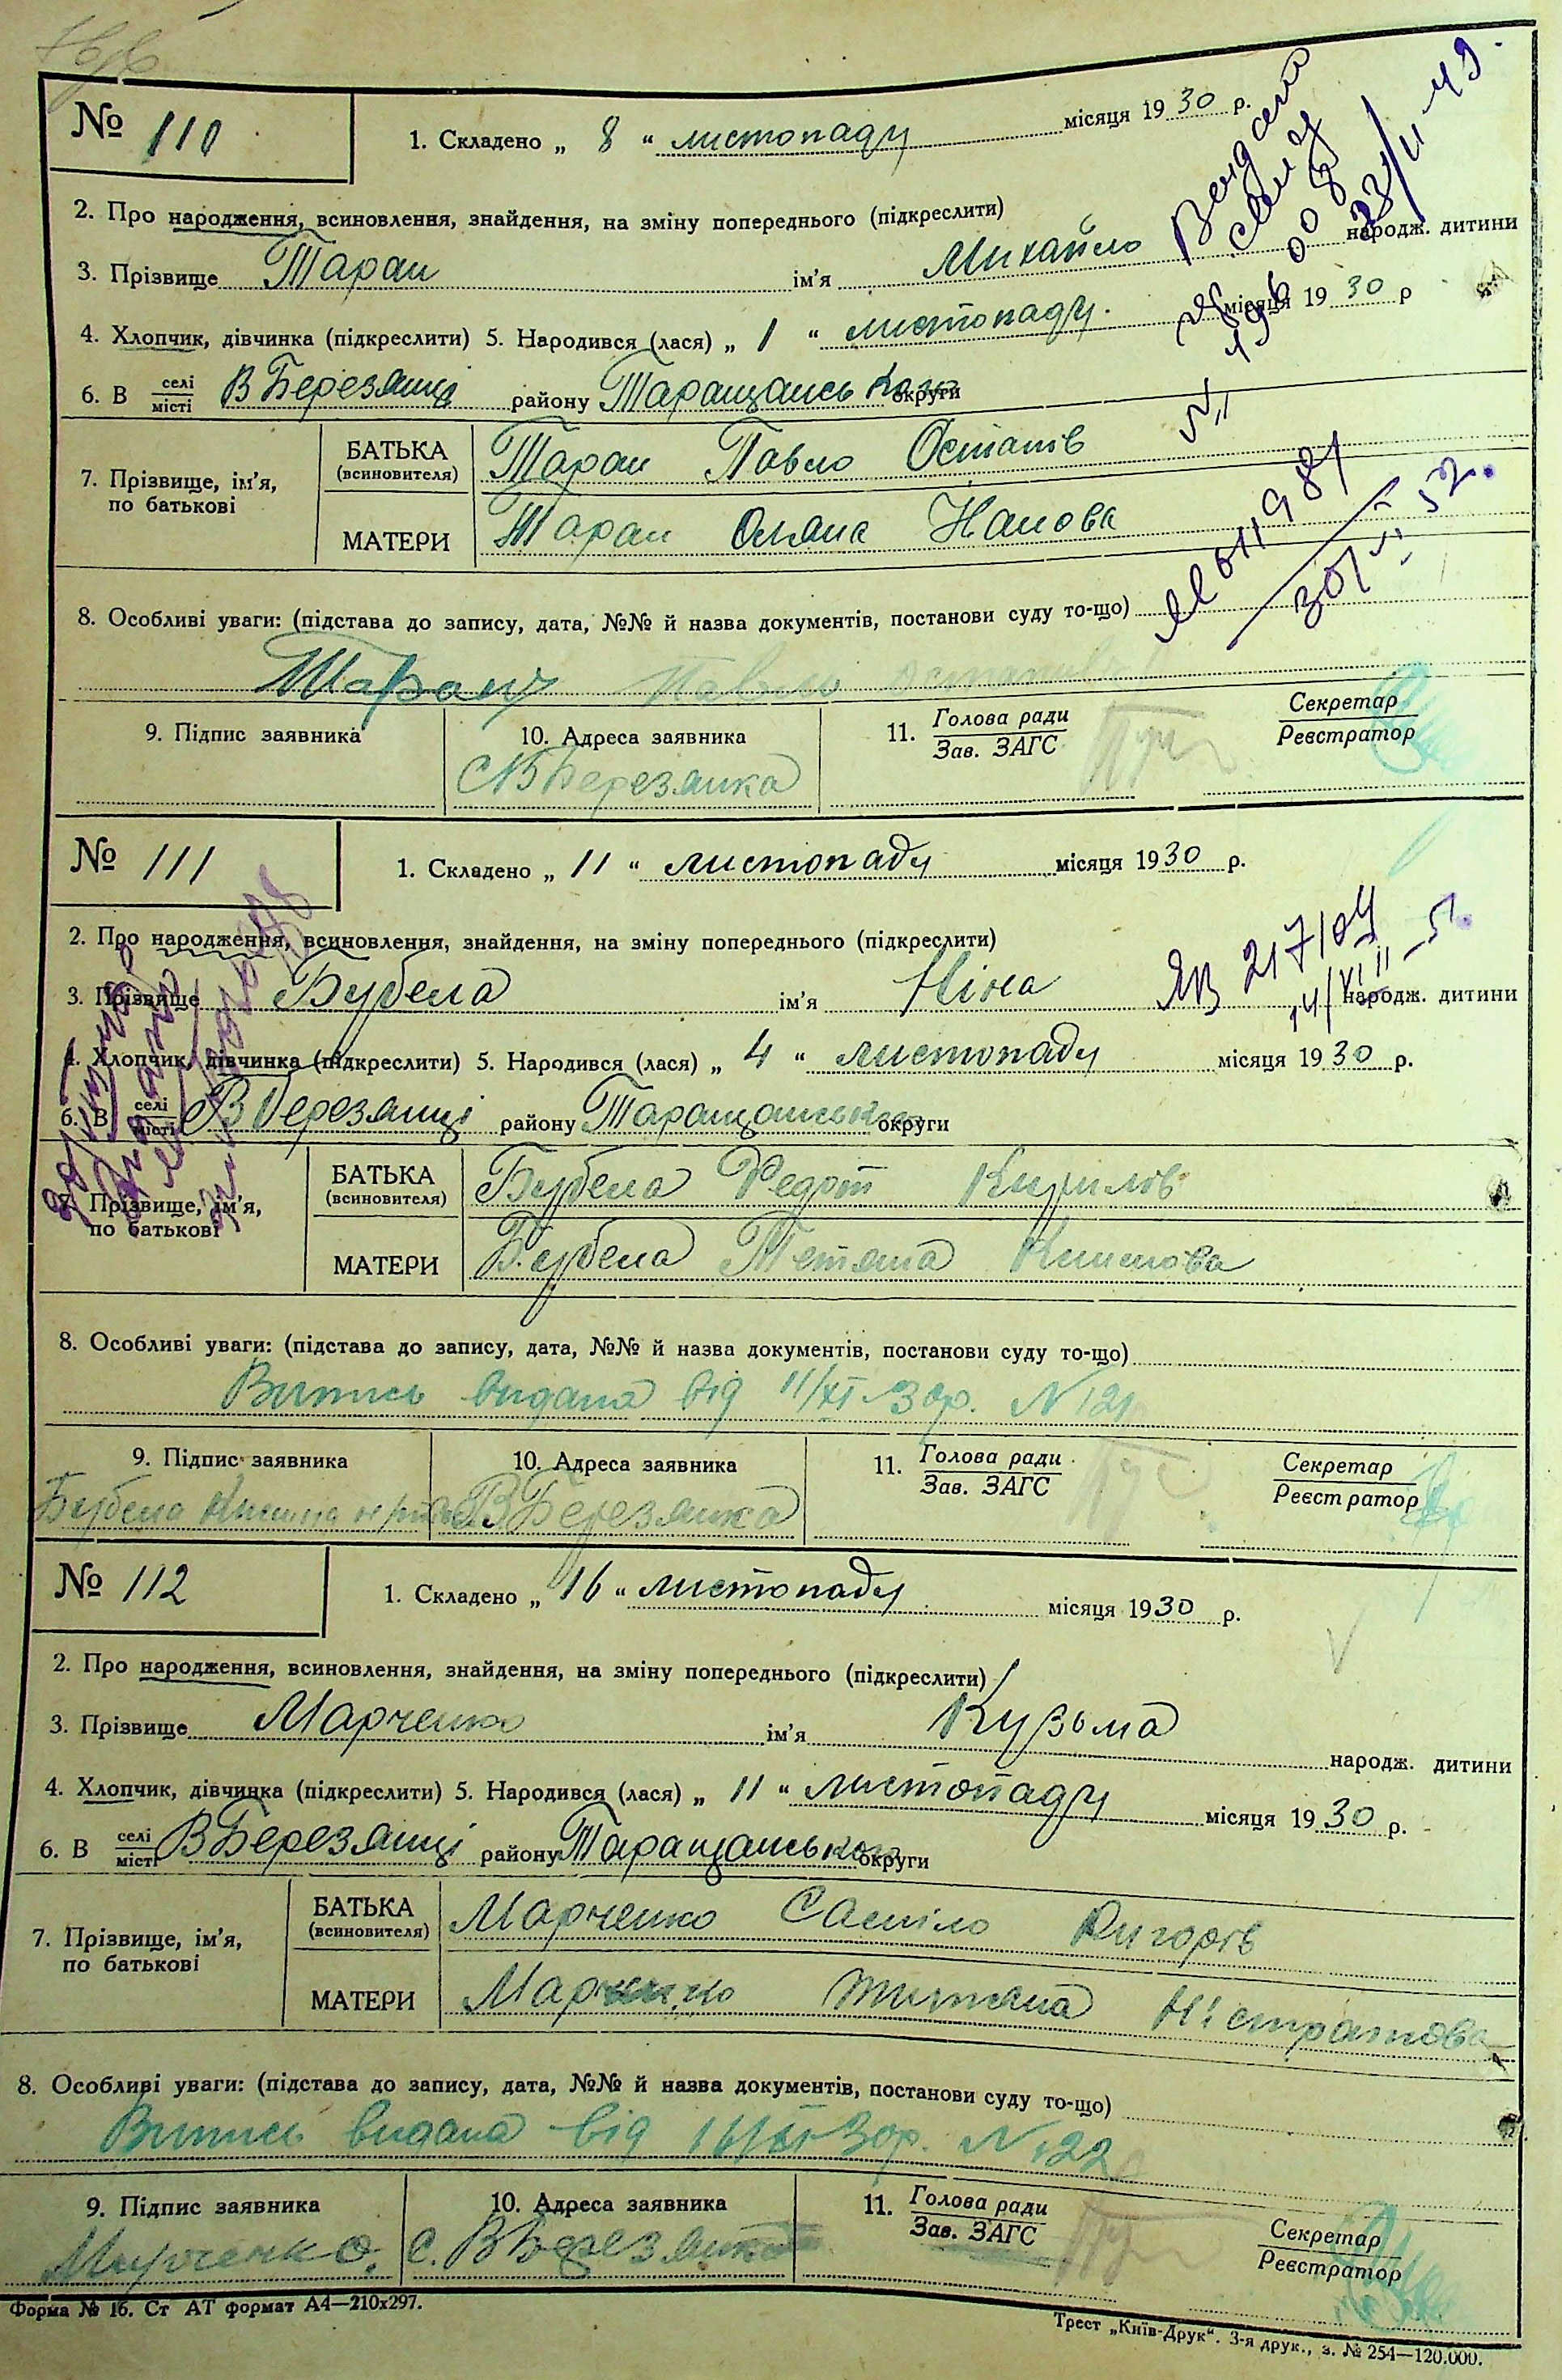 № 110
1. Складено „ 8 “ листопаду місяця 1930 р.
2. Про народження, всиновлення, знайдення, на зміну попереднього (підкреслити)
3. Прізвище Таран ім'я Михайло народж. дитини
4. Хлопчик, дівчинка (підкреслити) 5. Народився (лася) „ 1 “ листопаду. місяця 1930 р
6. В селі місті В Березянці району Таращанського округи
7. Прізвище, ім'я, по батькові
БАТЬКА (всиновителя) Таран Павло Остапів
МАТЕРИ Таран Оляна
8. Особливі уваги: (підстава до запису, дата, №№ й назва документів, постанови суду то-що)
Таран Павло
9. Підпис заявника 10. Адреса заявника 11. Голова ради Зав. ЗАГС Секретар Реєстратор
С В Березянка
№ 111
1. Складено „ 11 “ листопаду місяця 1930 р.
2. Про народження, всиновлення, знайдення, на зміну попереднього (підкреслити)
3. Прізвище Бубела ім'я Ніна народж. дитини
ЯВ 217104
4. Хлопчик, дівчинка (підкреслити) 5. Народився (лася) „ 4 “ листопаду місяця 1930 р.
6. В селі місті В Березянці району Таращанського округи
7. Прізвище, ім'я, по батькові
БАТЬКА (всиновителя) Бубела Федот Кирилів
МАТЕРИ Бубела Тетяна
8. Особливі уваги: (підстава до запису, дата, №№ й назва документів, постанови суду то-що)
Випись видана від 11/XI-30р. N 121
9. Підпис заявника 10. Адреса заявника 11. Голова ради Зав. ЗАГС Секретар Реєстратор
Бубела В Березянка
№ 112
1. Складено „ 16 “ листопаду місяця 1930 р.
2. Про народження, всиновлення, знайдення, на зміну попереднього (підкреслити)
3. Прізвище Марченко ім'я Кузьма народж. дитини
4. Хлопчик, дівчинка (підкреслити) 5. Народився (лася) „ 11 “ листопаду місяця 1930 р.
6. В селі місті В Березянці району Таращанського округи
7. Прізвище, ім'я, по батькові
БАТЬКА (всиновителя) Марченко Самійло
МАТЕРИ Марченко Ністратова
8. Особливі уваги: (підстава до запису, дата, №№ й назва документів, постанови суду то-що)
Випись видана від 16/XI-30р. N 122
9. Підпис заявника 10. Адреса заявника 11. Голова ради Зав. ЗАГС Секретар Реєстратор
Марченко. с. В Березянка
Форма № 16. Ст АТ формат А4—210x297.
Трест „Київ-Друк“. 3-я друк., з. № 254—120.000.